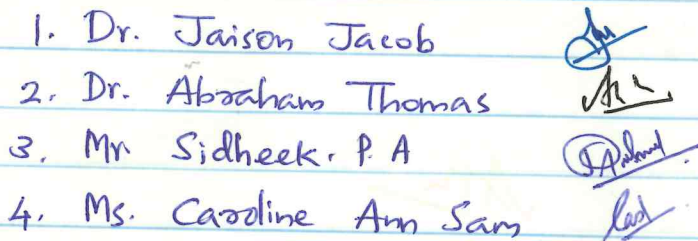 1. Dr. Jaison Jacob
2. Dr. Abraham Thomas
3. Mr. Sidheek. P. A
4. Ms. Caroline Ann Sam